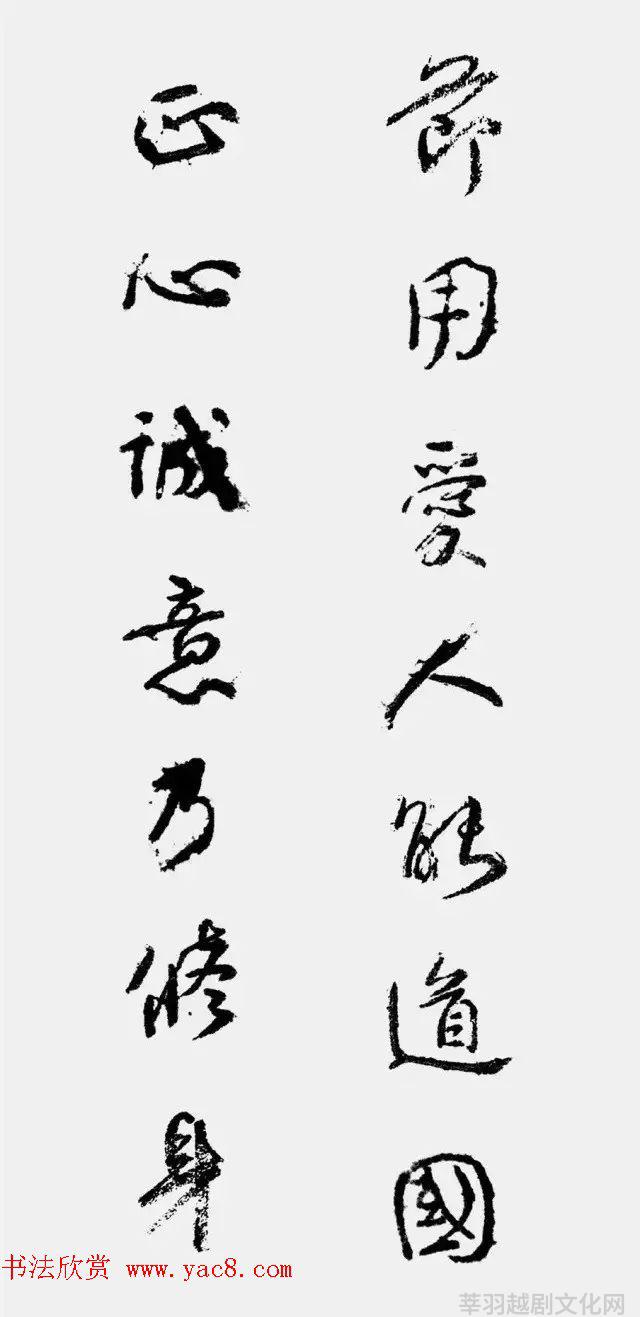 節用愛人能道國
正心誠意乃修身
书法欣赏 www.yac8.com
莘羽越剧文化网